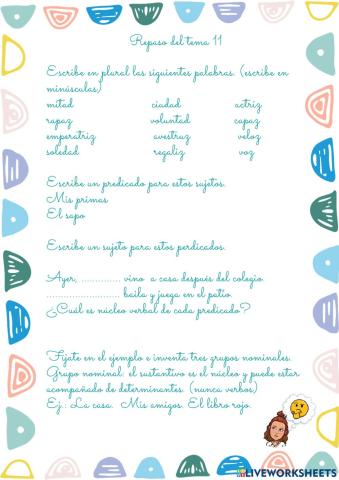 Repaso del tema 11
Escribe en plural las siguientes palabras. (escribe en
minúsculas)
mitad ciudad actriz
rapaz voluntad capaz
emperatriz avestruz veloz
soledad regaliz voz
Escribe un predicado para estos sujetos.
Mis primas
El sapo
Escribe un sujeto para estos perdicados.
Ayer, .............. vino a casa después del colegio.
......................... baila y juega en el patio.
¿Cuál es núcleo verbal de cada predicado?
Fíjate en el ejemplo e inventa tres grupos nominales.
Grupo nominal: el sustantivo es el núcleo y puede estar
acompañado de determinantes. (nunca verbos)
Ej.: La casa. Mis amigos. El libro rojo.
LIVEWORKSHEETS